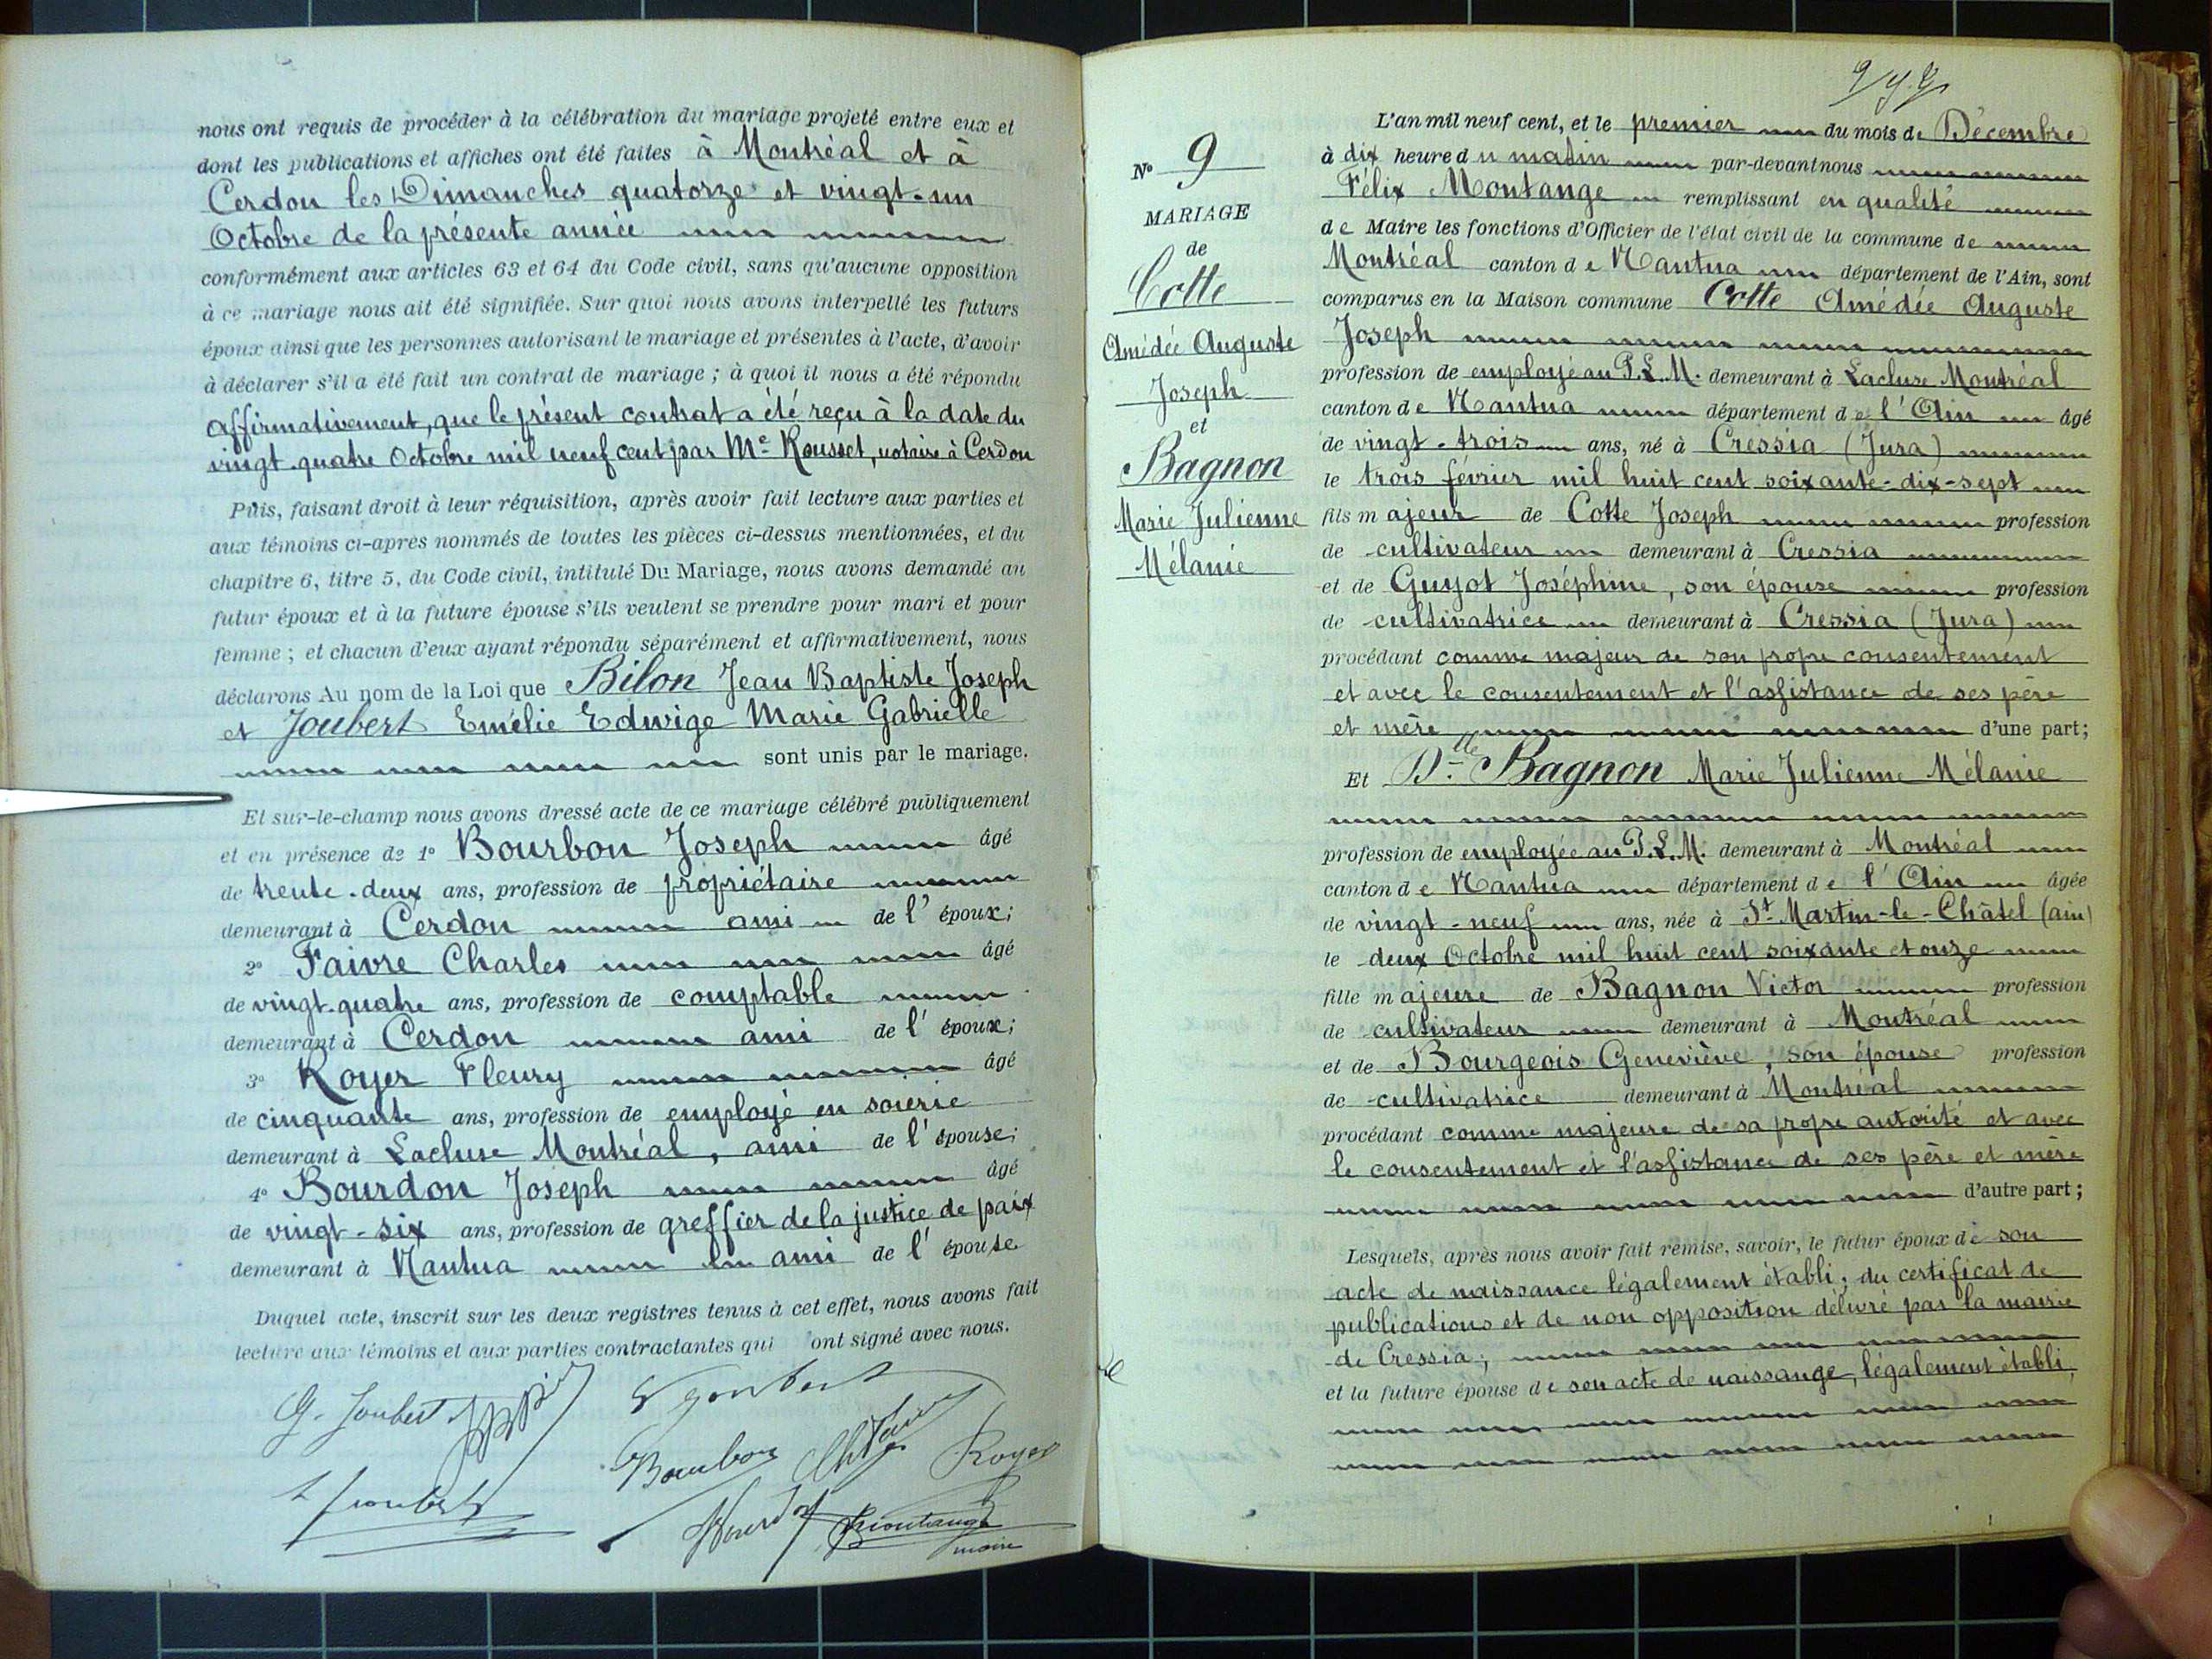 nous ont requis de procéder à la célébration du mariage projeté entre eux et
dont les publications et affiches ont été faites à Montréal et à
Cerdon les Dimanches quatorze et vingt-un
Octobre de la présente année
conformément aux articles 63 et 64 du Code civil, sans qu'aucune opposition
à ce mariage nous ait été signifiée. Sur quoi nous avons interpellé les futurs
époux ainsi que les personnes autorisant le mariage et présentes à l'acte, d'avoir
à déclarer s'il a été fait un contrat de mariage ; à quoi il nous a été répondu
affirmativement, que le présent contrat a été reçu à la date du
vingt-quatre Octobre mil neuf cent par Me Rousset, notaire à Cerdon
Puis, faisant droit à leur réquisition, après avoir fait lecture aux parties et
aux témoins ci-après nommés de toutes les pièces ci-dessus mentionnées, et du
chapitre 6, titre 5, du Code civil, intitulé Du Mariage, nous avons demandé au
futur époux et à la future épouse s'ils veulent se prendre pour mari et pour
femme ; et chacun d'eux ayant répondu séparément et affirmativement, nous
déclarons Au nom de la Loi que Bilon Jean Baptiste Joseph
et Joubert Emélie Edwige Marie Gabrielle
sont unis par le mariage.
Et sur-le-champ nous avons dressé acte de ce mariage célébré publiquement
et en présence de 1° Bourbon Joseph âgé
de trente-deux ans, profession de propriétaire
demeurant à Cerdon ami de l'époux ;
2° Faivre Charles âgé
de vingt-quatre ans, profession de comptable
demeurant à Cerdon ami de l'époux ;
3° Royer Fleury âgé
de cinquante ans, profession de employé en soierie
demeurant à Lacluse Montréal, ami de l'épouse ;
4° Bourdon Joseph âgé
de vingt-six ans, profession de greffier de la justice de paix
demeurant à Nantua ami de l'épouse
Duquel acte, inscrit sur les deux registres tenus à cet effet, nous avons fait
lecture aux témoins et aux parties contractantes qui ont signé avec nous.
G. Joubert
Joubert
Bourbon Ch Faivre Royer
Joubert
Bourdon Montange
maire
N° 9
MARIAGE
de
Cotte
Amédée Auguste
Joseph
et
Bagnon
Marie Julienne
Mélanie
L'an mil neuf cent, et le premier du mois de Décembre
à dix heure du matin par-devant nous
Félix Montange remplissant en qualité
de Maire les fonctions d'Officier de l'état civil de la commune de
Montréal canton de Nantua département de l'Ain, sont
comparus en la Maison commune Cotte Amédée Auguste
Joseph
profession de employé au P.L.M. demeurant à Lacluse Montréal
canton de Nantua département de l'Ain âgé
de vingt-trois ans, né à Cressia (Jura)
le trois février mil huit cent soixante-dix-sept
fils majeur de Cotte Joseph profession
de cultivateur demeurant à Cressia
et de Guyot Joséphine, son épouse profession
de cultivatrice demeurant à Cressia (Jura)
procédant comme majeur de son propre consentement
et avec le consentement et l'assistance de ses père
et mère d'une part ;
Et Dlle Bagnon Marie Julienne Mélanie
profession de employée au P.L.M. demeurant à Montréal
canton de Nantua département de l'Ain âgée
de vingt-neuf ans, née à St-Martin-le-Châtel (ain)
le deux Octobre mil huit cent soixante et onze
fille majeure de Bagnon Victor profession
de cultivateur demeurant à Montréal
et de Bourgeois Geneviève, son épouse profession
de cultivatrice demeurant à Montréal
procédant comme majeure de sa propre autorité et avec
le consentement et l'assistance de ses père et mère
d'autre part ;
Lesquels, après nous avoir fait remise, savoir, le futur époux de son
acte de naissance légalement établi ; du certificat de
publications et de non opposition délivré par la mairie
de Cressia ;
et la future épouse de son acte de naissance, légalement établi